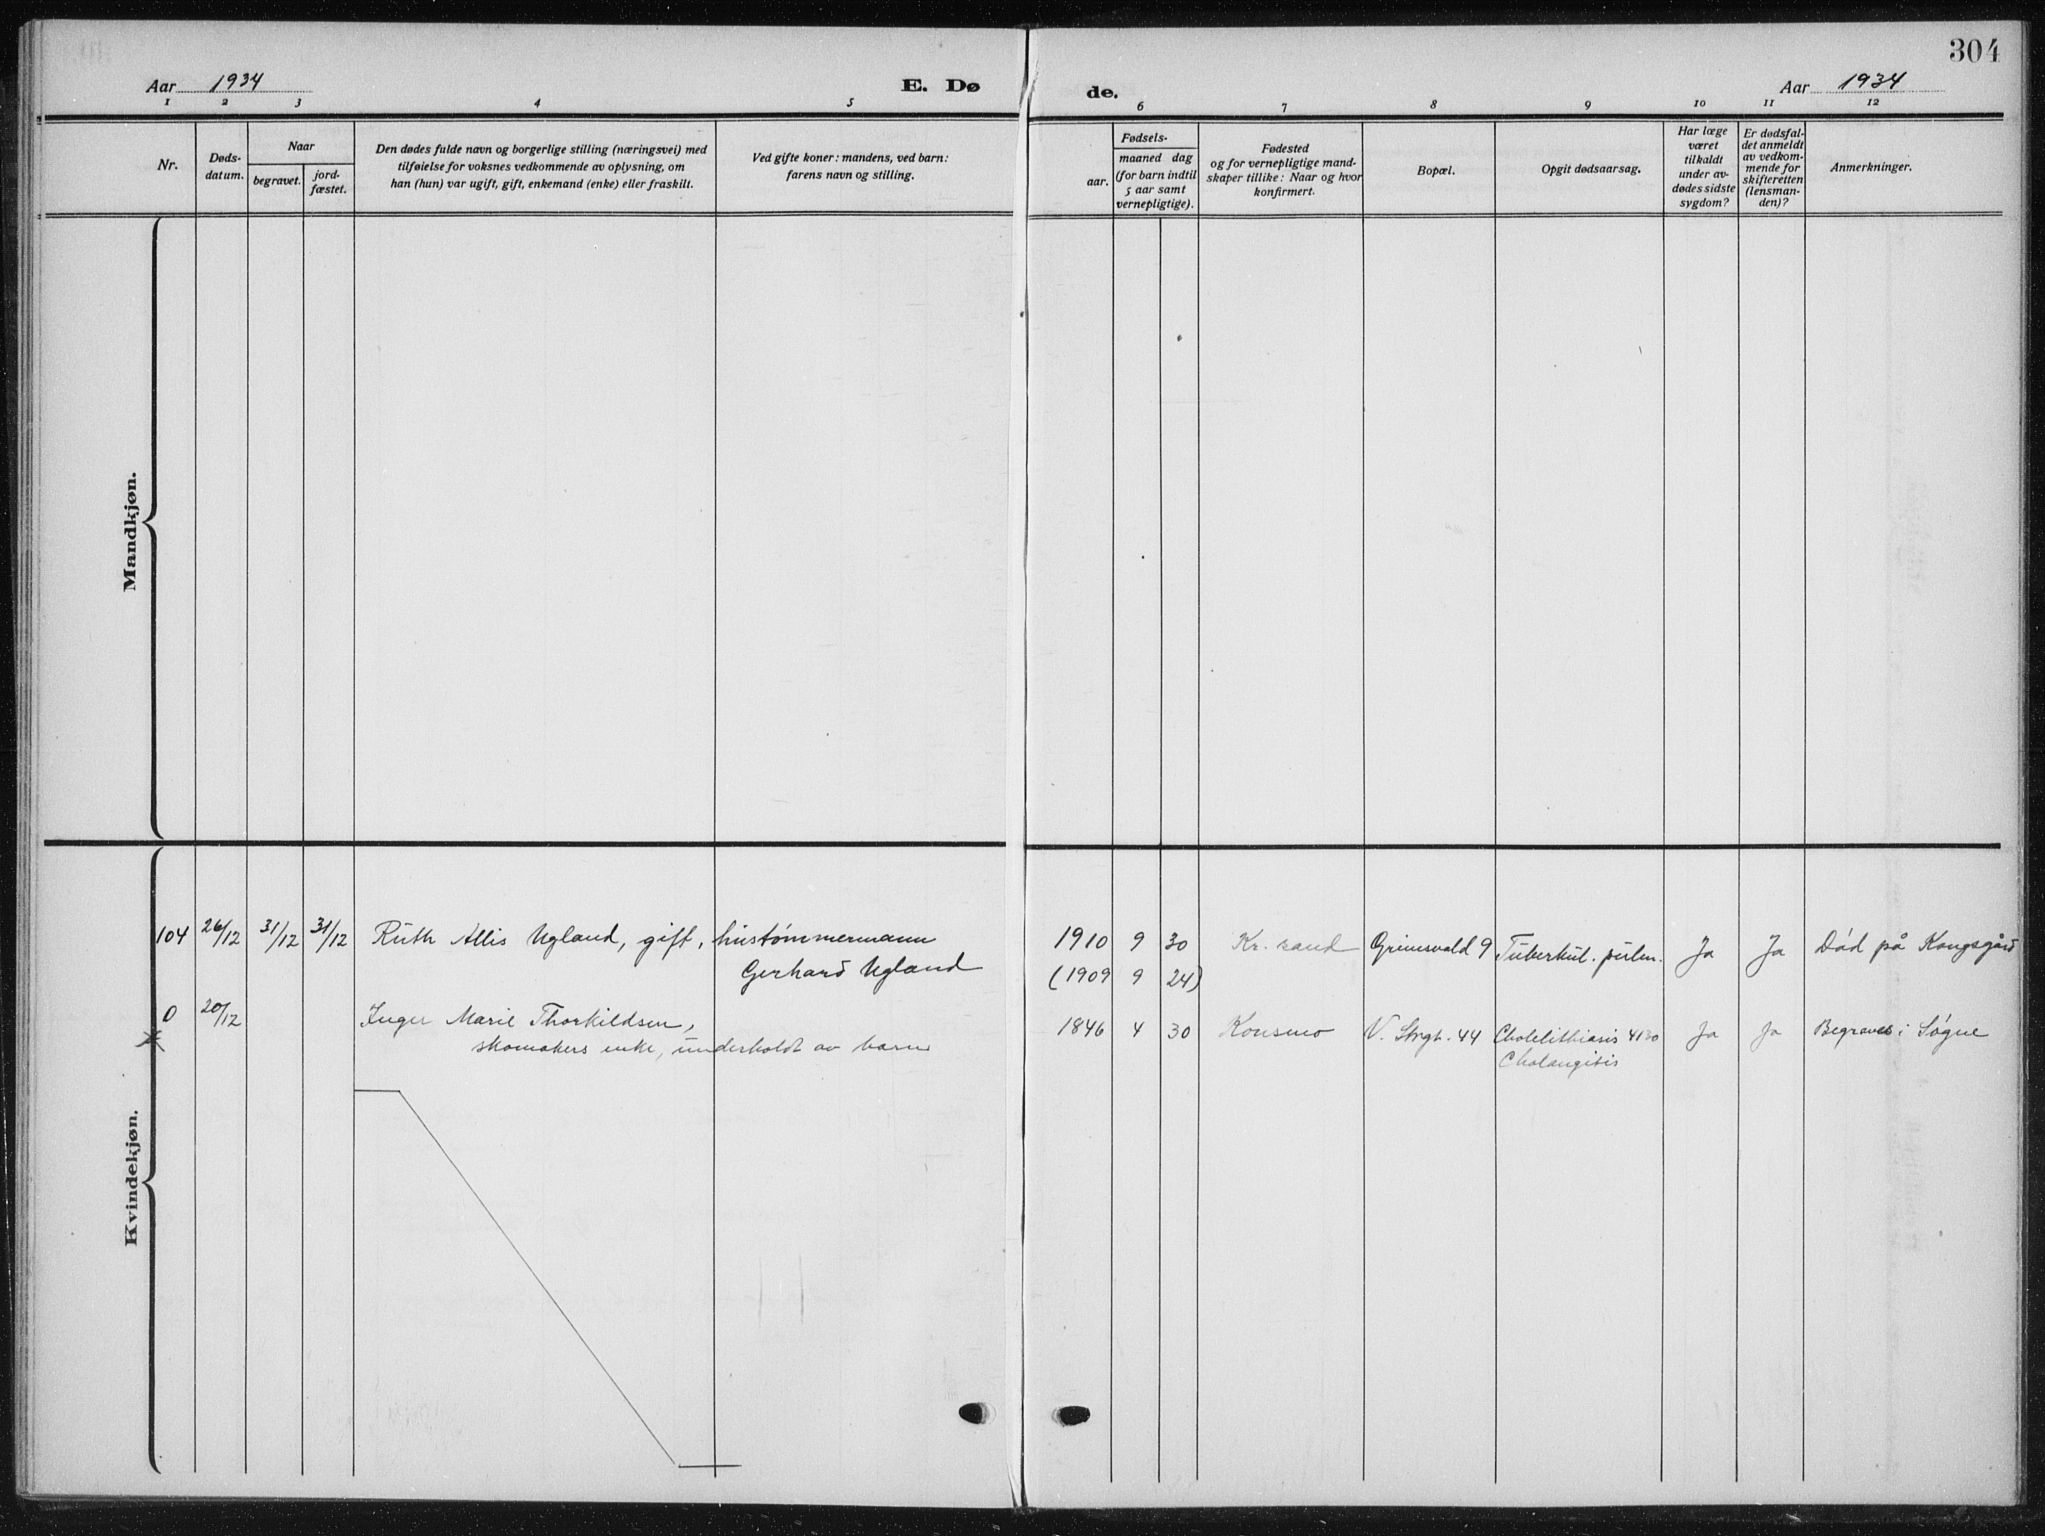 304
Aar 1934
E. Dø
de.
Aar 1934
1 2 3 4 5 6 7 8 9 10 11 12
Nr.
Døds-
datum.
Naar
begravet.
jord-
fæstet.
Den dødes fulde navn og borgerlige stilling (næringsvei) med
tilføielse for voksnes vedkommende av oplysning, om
han (hun) var ugift, gift, enkemand (enke) eller fraskilt.
Ved gifte koner: mandens, ved barn:
farens navn og stilling.
Fødsels-
aar.
maaned dag
(for barn indtil
5 aar samt
vernepligtige).
Fødested
og for vernepligtige mand-
skaper tillike: Naar og hvor
konfirmert.
Bopæl.
Opgit dødsaarsag.
Har læge
været
tilkaldt
under av-
dødes sidste
sygdom?
Er dødsfal-
det anmeldt
av vedkom-
mende for
skifteretten
(lensman-
den)?
Anmerkninger.
Mandkjøn.
Kvindekjøn.
104 26/12 31/12 31/12 Ruth Allis Ugland, gift, hustømmermann 1910 9 30 Kr.sand Grimsvold 9 Tuberkul. pulm. Ja Ja Död på Kongsgård
Gerhard Ugland (1909 9 24)
0 20/12 Inger Marie Thorkildsen, 1846 4 30 Konsmo V. Strgt. 44 Cholelithiasis 4130 Ja Ja Begraves i Søgne
skomakers enke, underholdt av barn Cholangitis